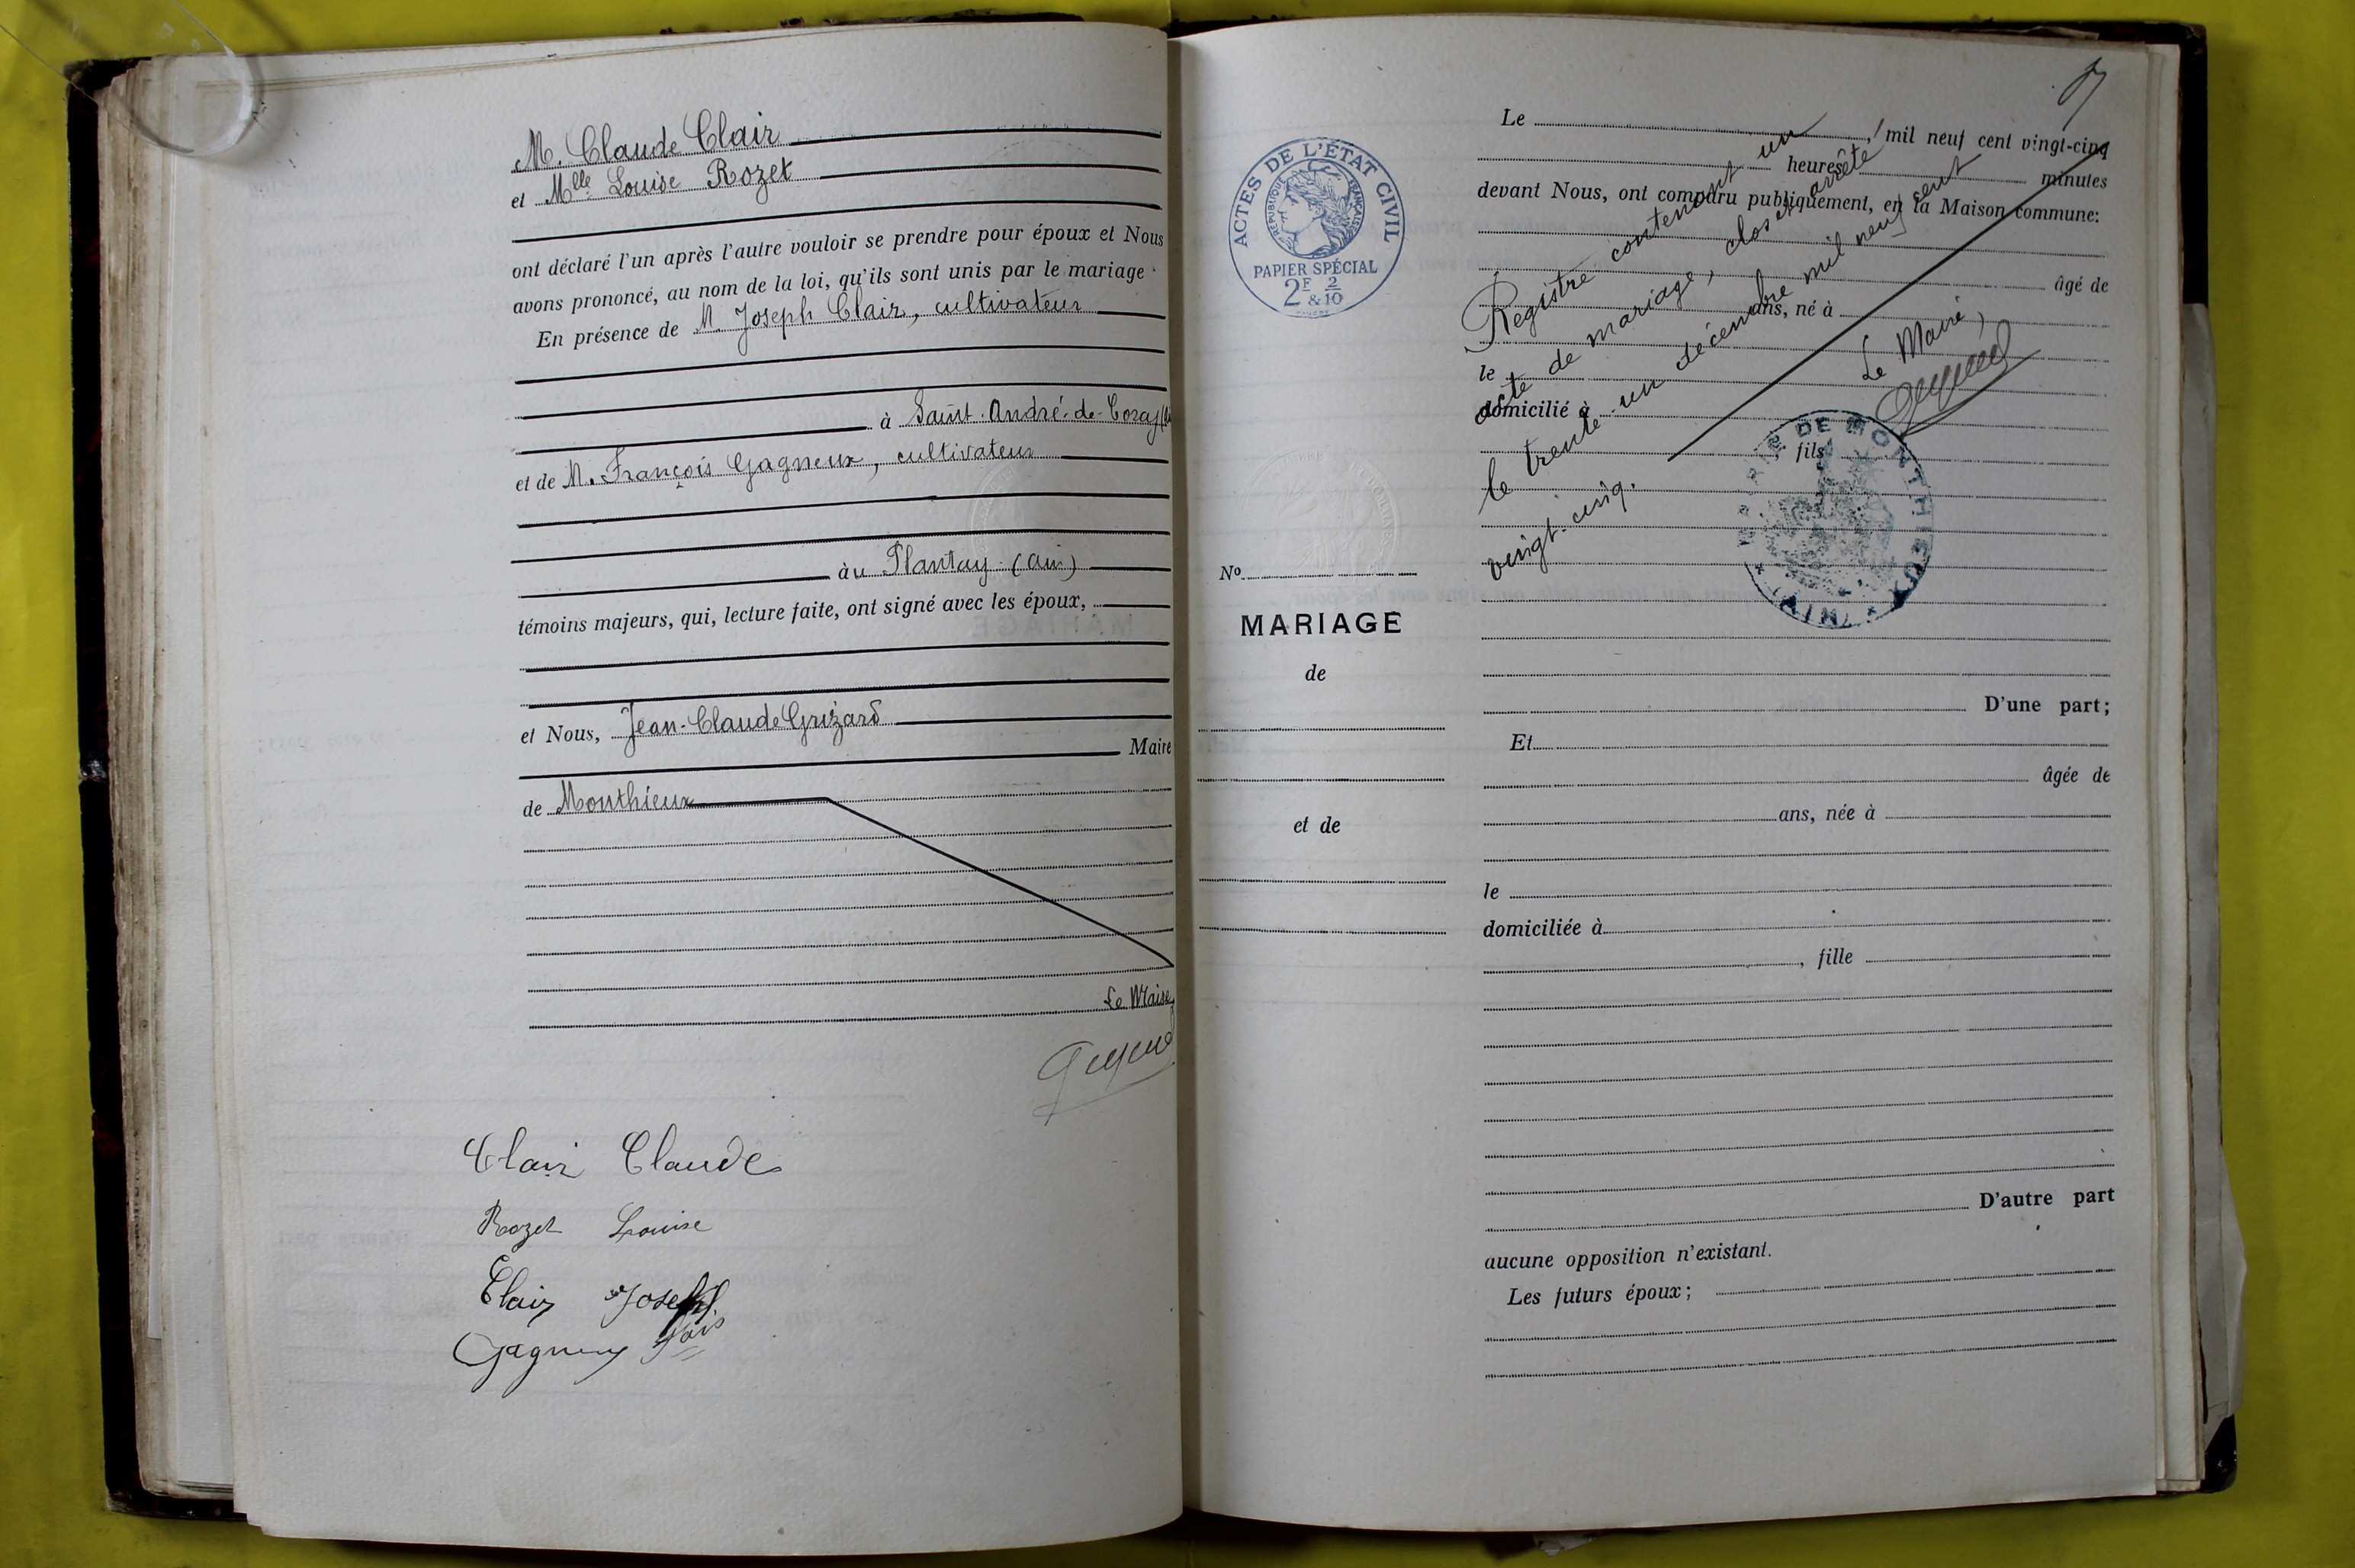 M. Claude Clair
et Mlle Louise Rozet
ont déclaré l'un après l'autre vouloir se prendre pour époux et Nous
avons prononcé, au nom de la loi, qu'ils sont unis par le mariage
En présence de M. Joseph Clair, cultivateur
à Saint-André-de-Corcy
et de M. François Gagneux, cultivateur
àu Plantay (Ain)
témoins majeurs, qui, lecture faite, ont signé avec les époux,
et Nous, Jean-Claude Grizard
Maire
de Monthieux
Le Maire
Clair Claude
Rozet Louise
Clair Joseph
Gagneux Fois
ACTES DE L'ÉTAT CIVIL
RÉPUBLIQUE FRANÇAISE
PAPIER SPÉCIAL
2F 2
&10
No
MARIAGE
de
et de
Le , mil neuf cent vingt-cinq
heures minutes
devant Nous, ont comparu publiquement, en la Maison commune:
âgé de
ans, né à
le
domicilié à
, fils
D'une part;
Et
âgée de
ans, née à
le
domiciliée à
, fille
D'autre part
aucune opposition n'existant.
Les futurs époux;
Registre contenant un
acte de mariage, clos et arrêté
le trente-un décembre mil neuf cent
vingt-cinq.
Le Maire,
MAIRIE DE MONTHIEUX
(AIN)